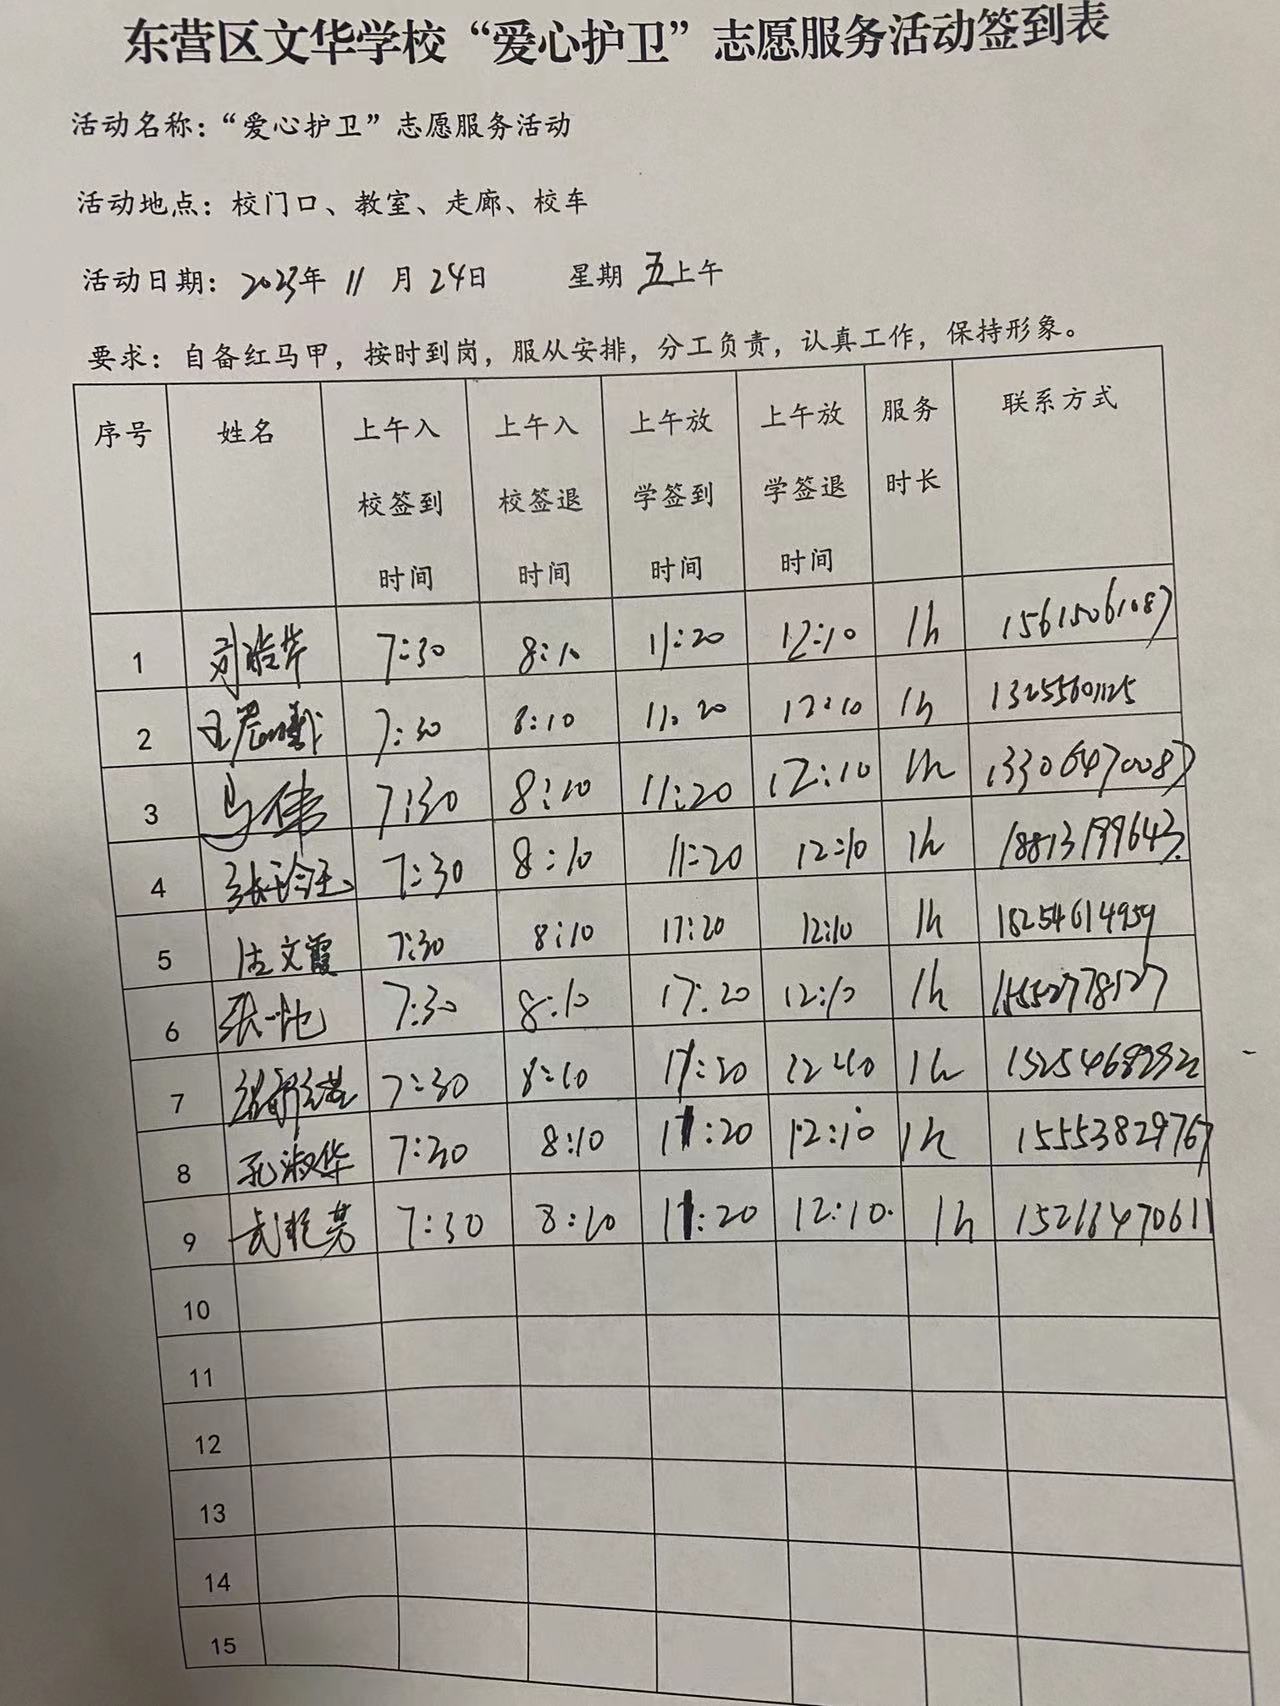 东营区文华学校“爱心护卫”志愿服务活动签到表
活动名称：“爱心护卫”志愿服务活动
活动地点：校门口、教室、走廊、校车
活动日期：2023年 11 月 24日 星期 五上午
要求：自备红马甲，按时到岗，服从安排，分工负责，认真工作，保持形象。
序号 姓名 上午入校签到时间 上午入校签退时间 上午放学签到时间 上午放学签退时间 服务时长 联系方式
1 7:30 8:10 11:20 12:10 1h 15615061087
2 7:30 8:10 11:20 12:10 1h 13255601125
3 马伟 7:30 8:10 11:20 12:10 1h 13306470087
4 7:30 8:10 11:20 12:10 1h 18813199643
5 文霞 7:30 8:10 11:20 12:10 1h 18254614959
6 7:30 8:10 11:20 12:10 1h 15552778127
7 7:30 8:10 11:20 1h
8 孔淑华 7:30 8:10 11:20 12:10 1h 15553829767
9 武艳芳 7:30 8:10 11:20 12:10 1h
10
11
12
13
14
15